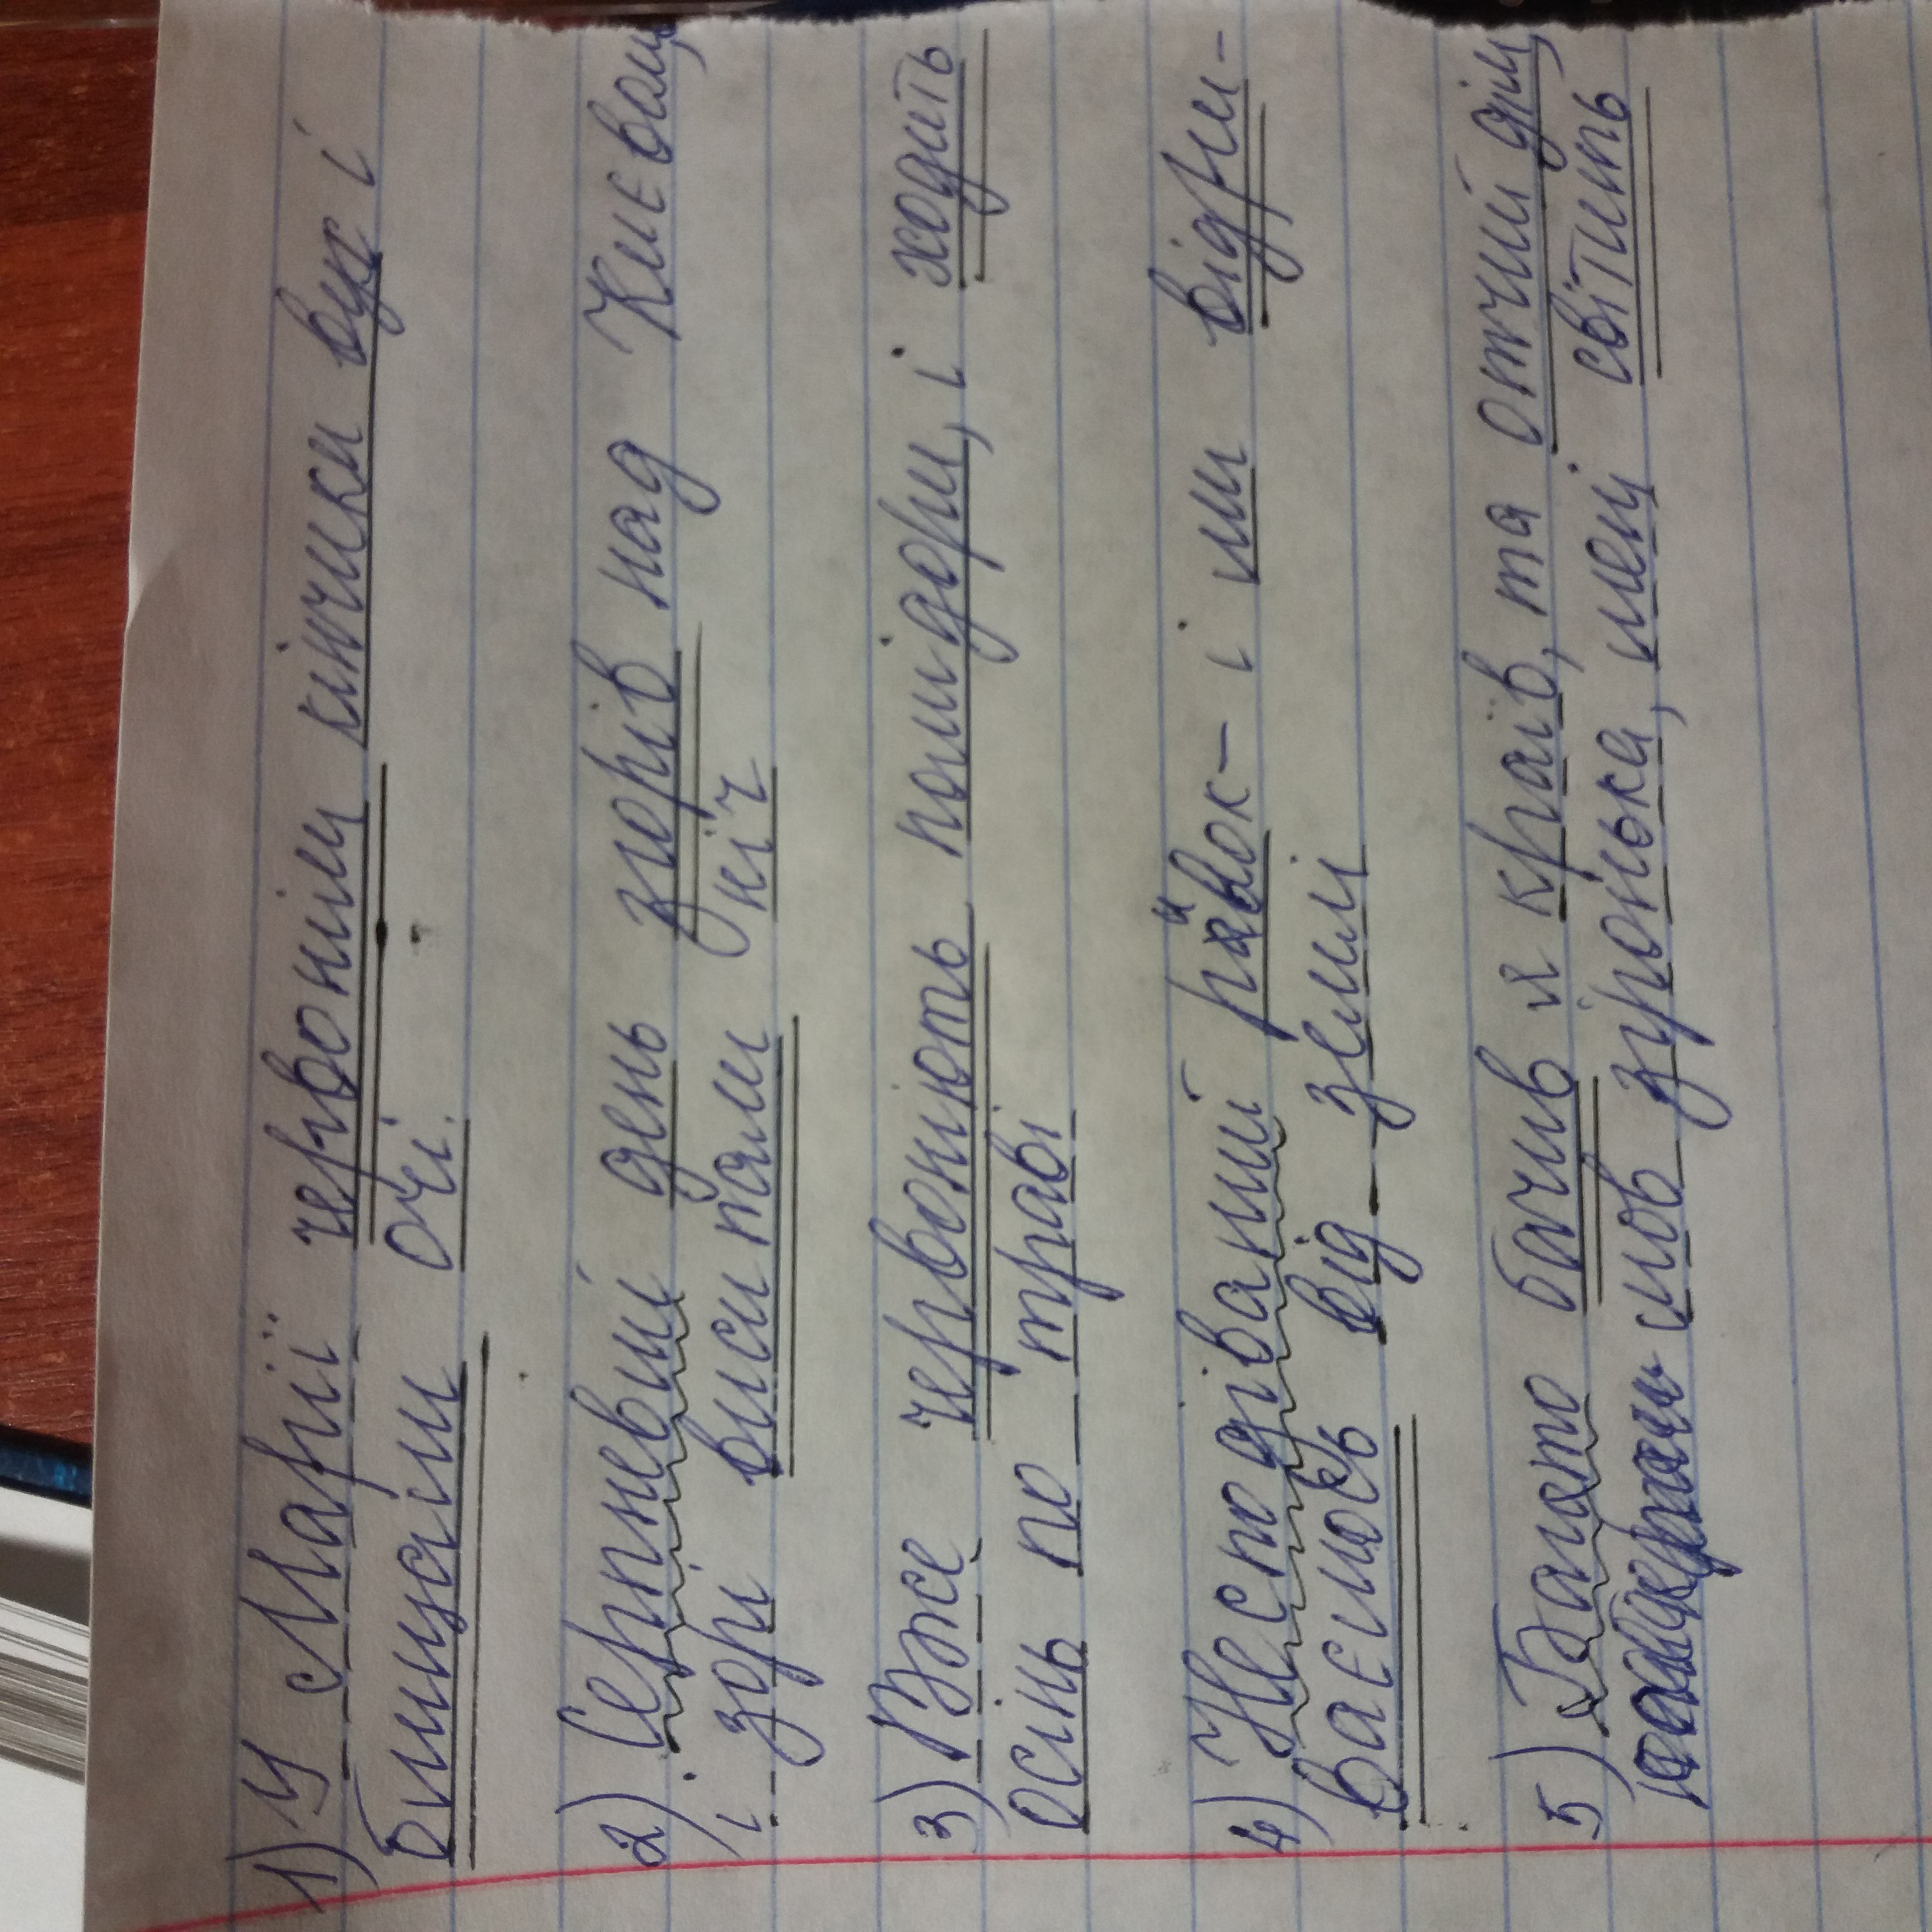 1) У Марії червоніли кінчики вух і
блищали очі.
2) Серпневий день згорів над Києвом,
і зорі висипали ніч
3) Вже червоніють помідори, і ходить
осінь по траві
4) Несподіваний ривок - і ми відри-
ваємось від землі
5) Багато бачив я країв, та отчий дім,
мов зіронька, мені світить